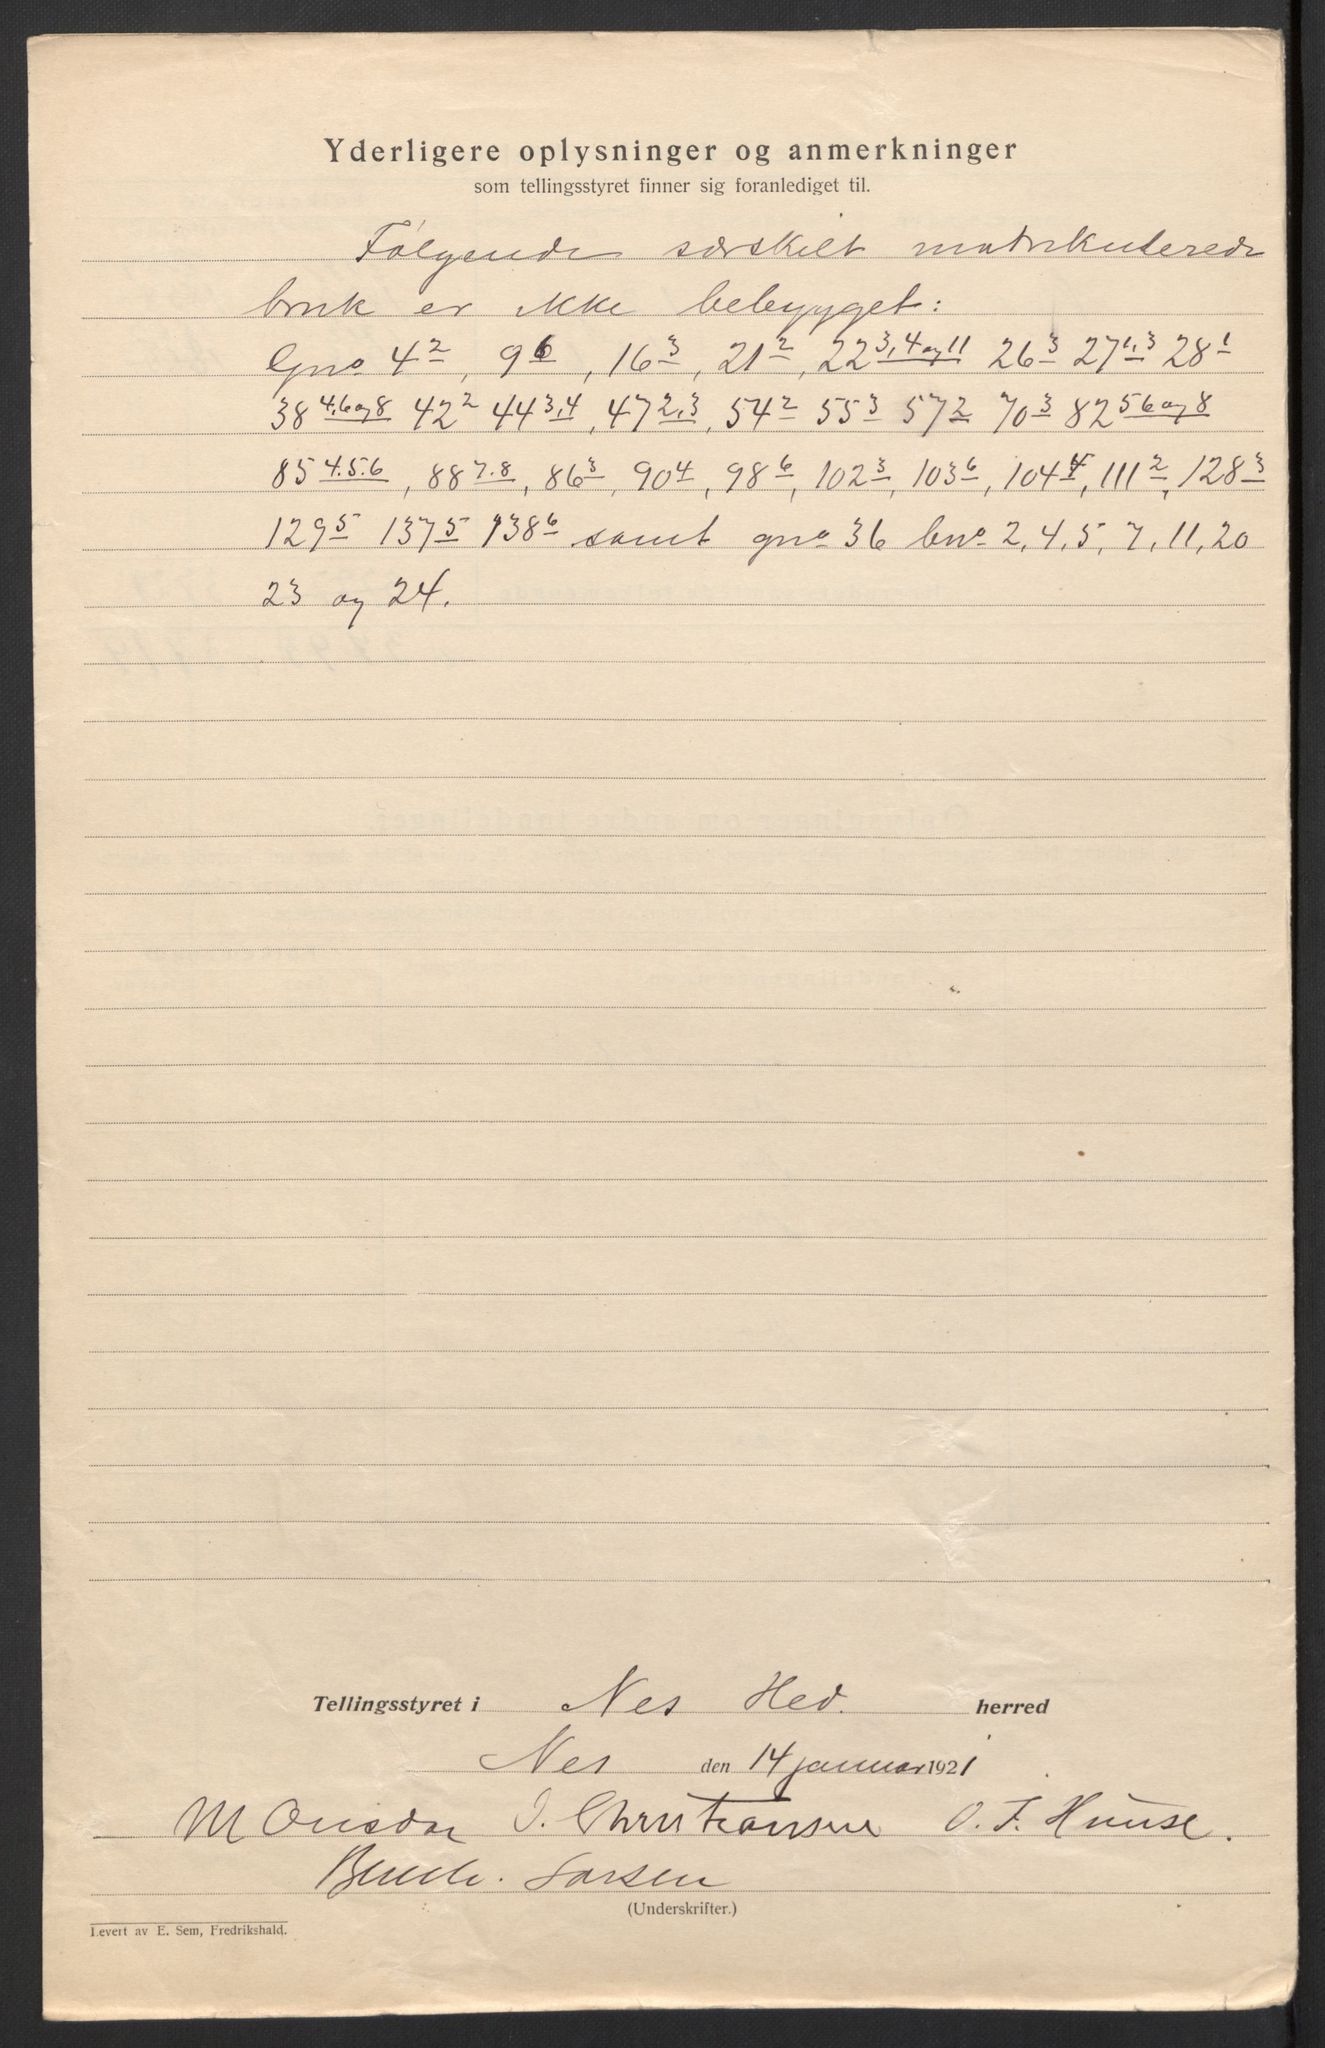 Yderligere oplysninger og anmerkninger
som tellingsstyret finner sig foranlediget til.
Følgende særskilt matrikulerede
bruk er ikke bebygget:
Gno 4², 9⁶, 16³, 21², 22³,⁴ ᵒᵍ ¹¹ 26³ 27¹,³ 28¹
38⁴,⁶ ᵒᵍ ⁸ 42² 44³,⁴, 47²,³, 54² 55³ 57² 70³ 82⁵ ⁶ ᵒᵍ ⁸
85⁴.⁵.⁶, 88⁷.⁸, 86³, 90⁴, 98⁶, 102³, 103⁶, 104⁴, 111², 128³
129⁵ 137⁵ 138⁶ samt gno 36 bno 2, 4, 5, 7, 11, 20
23 og 24.
Tellingsstyret i Nes Hed. herred
Nes den 14 januar 1921
M J. Christiansen O. F. Huuse.
Larsen
(Underskrifter.)
Levert av E. Sem, Fredrikshald.